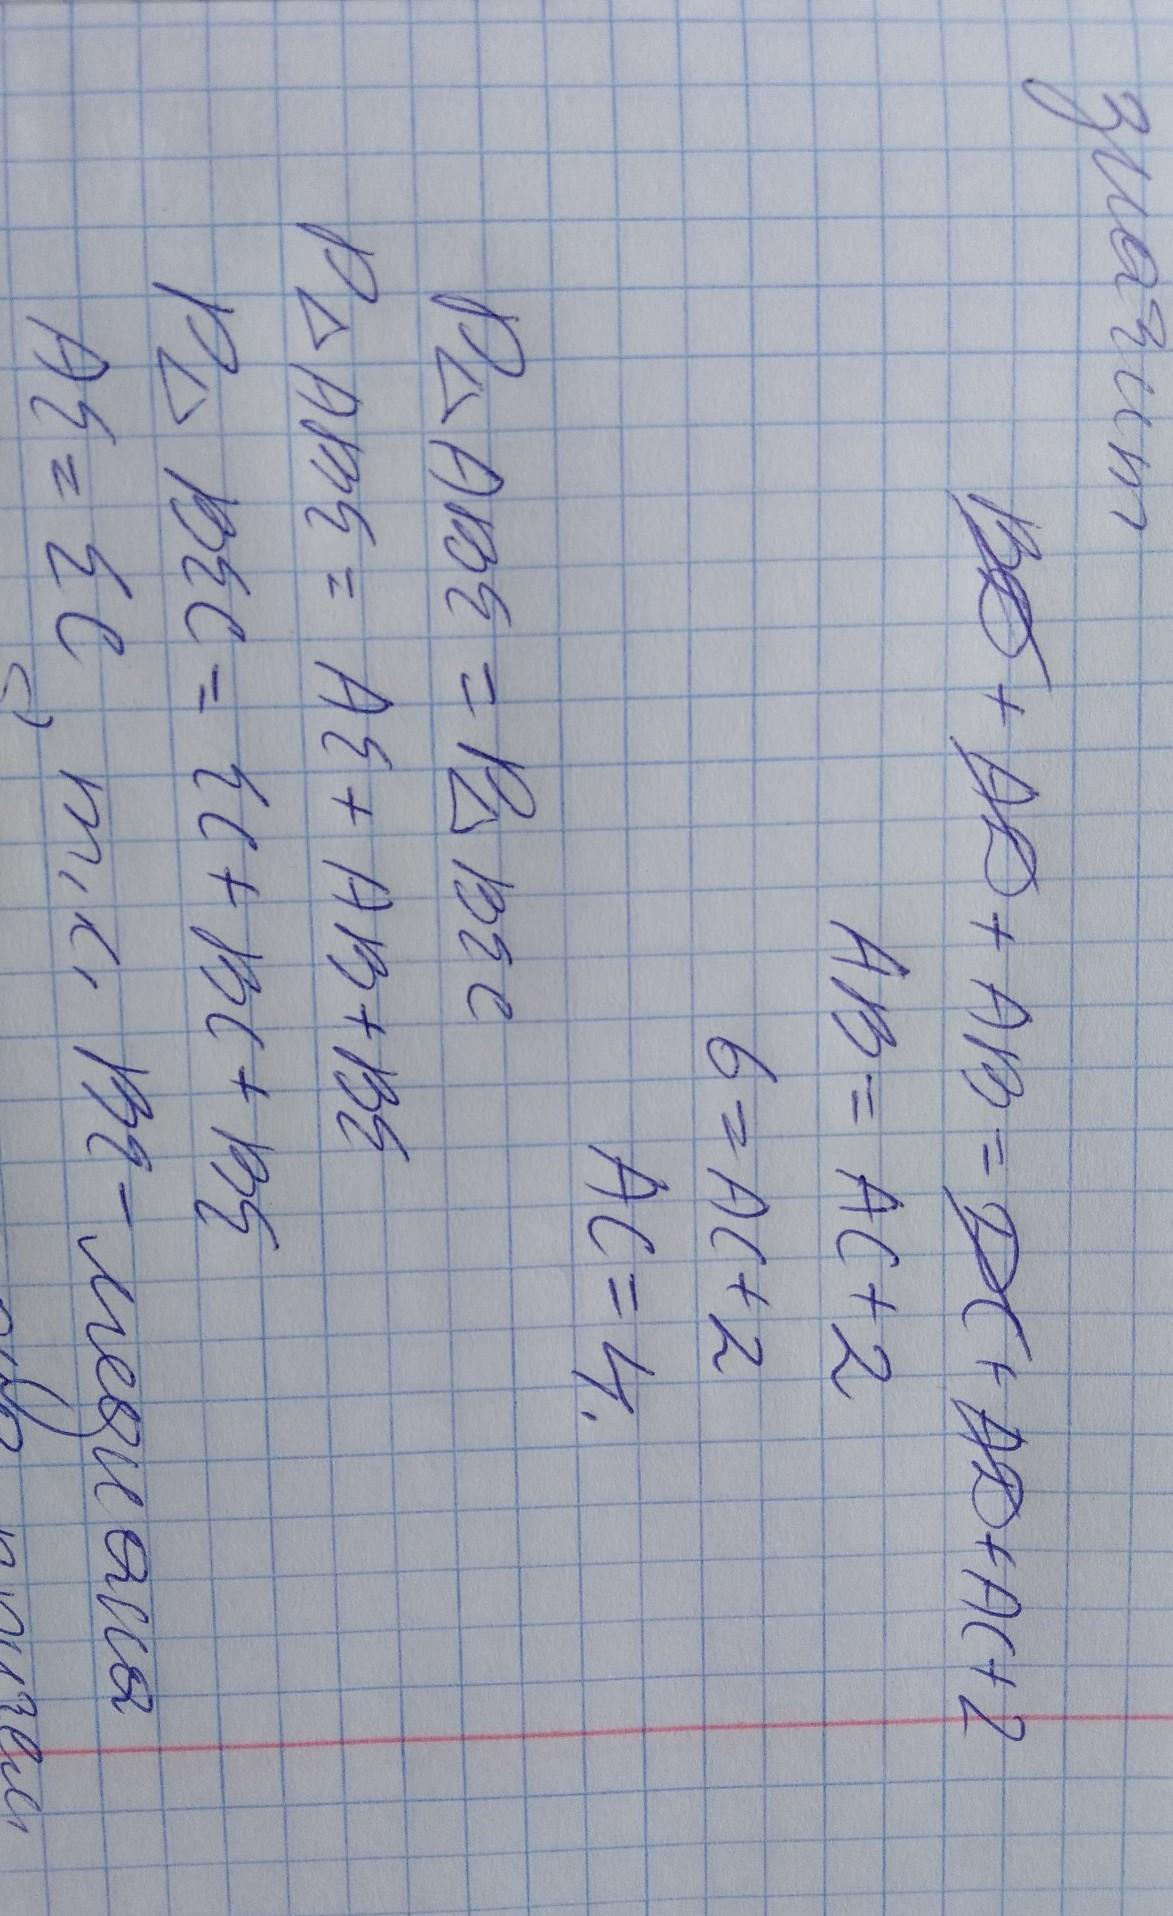 значит
BD + AD + AB = DC + AD + AC + 2
AB = AC + 2
6 = AC + 2
AC = 4.
P△ABE = P△BEC
P△ABE = AE + AB + BE
P△BEC = EC + BC + BE
AE = EC т.к. BE - медиана